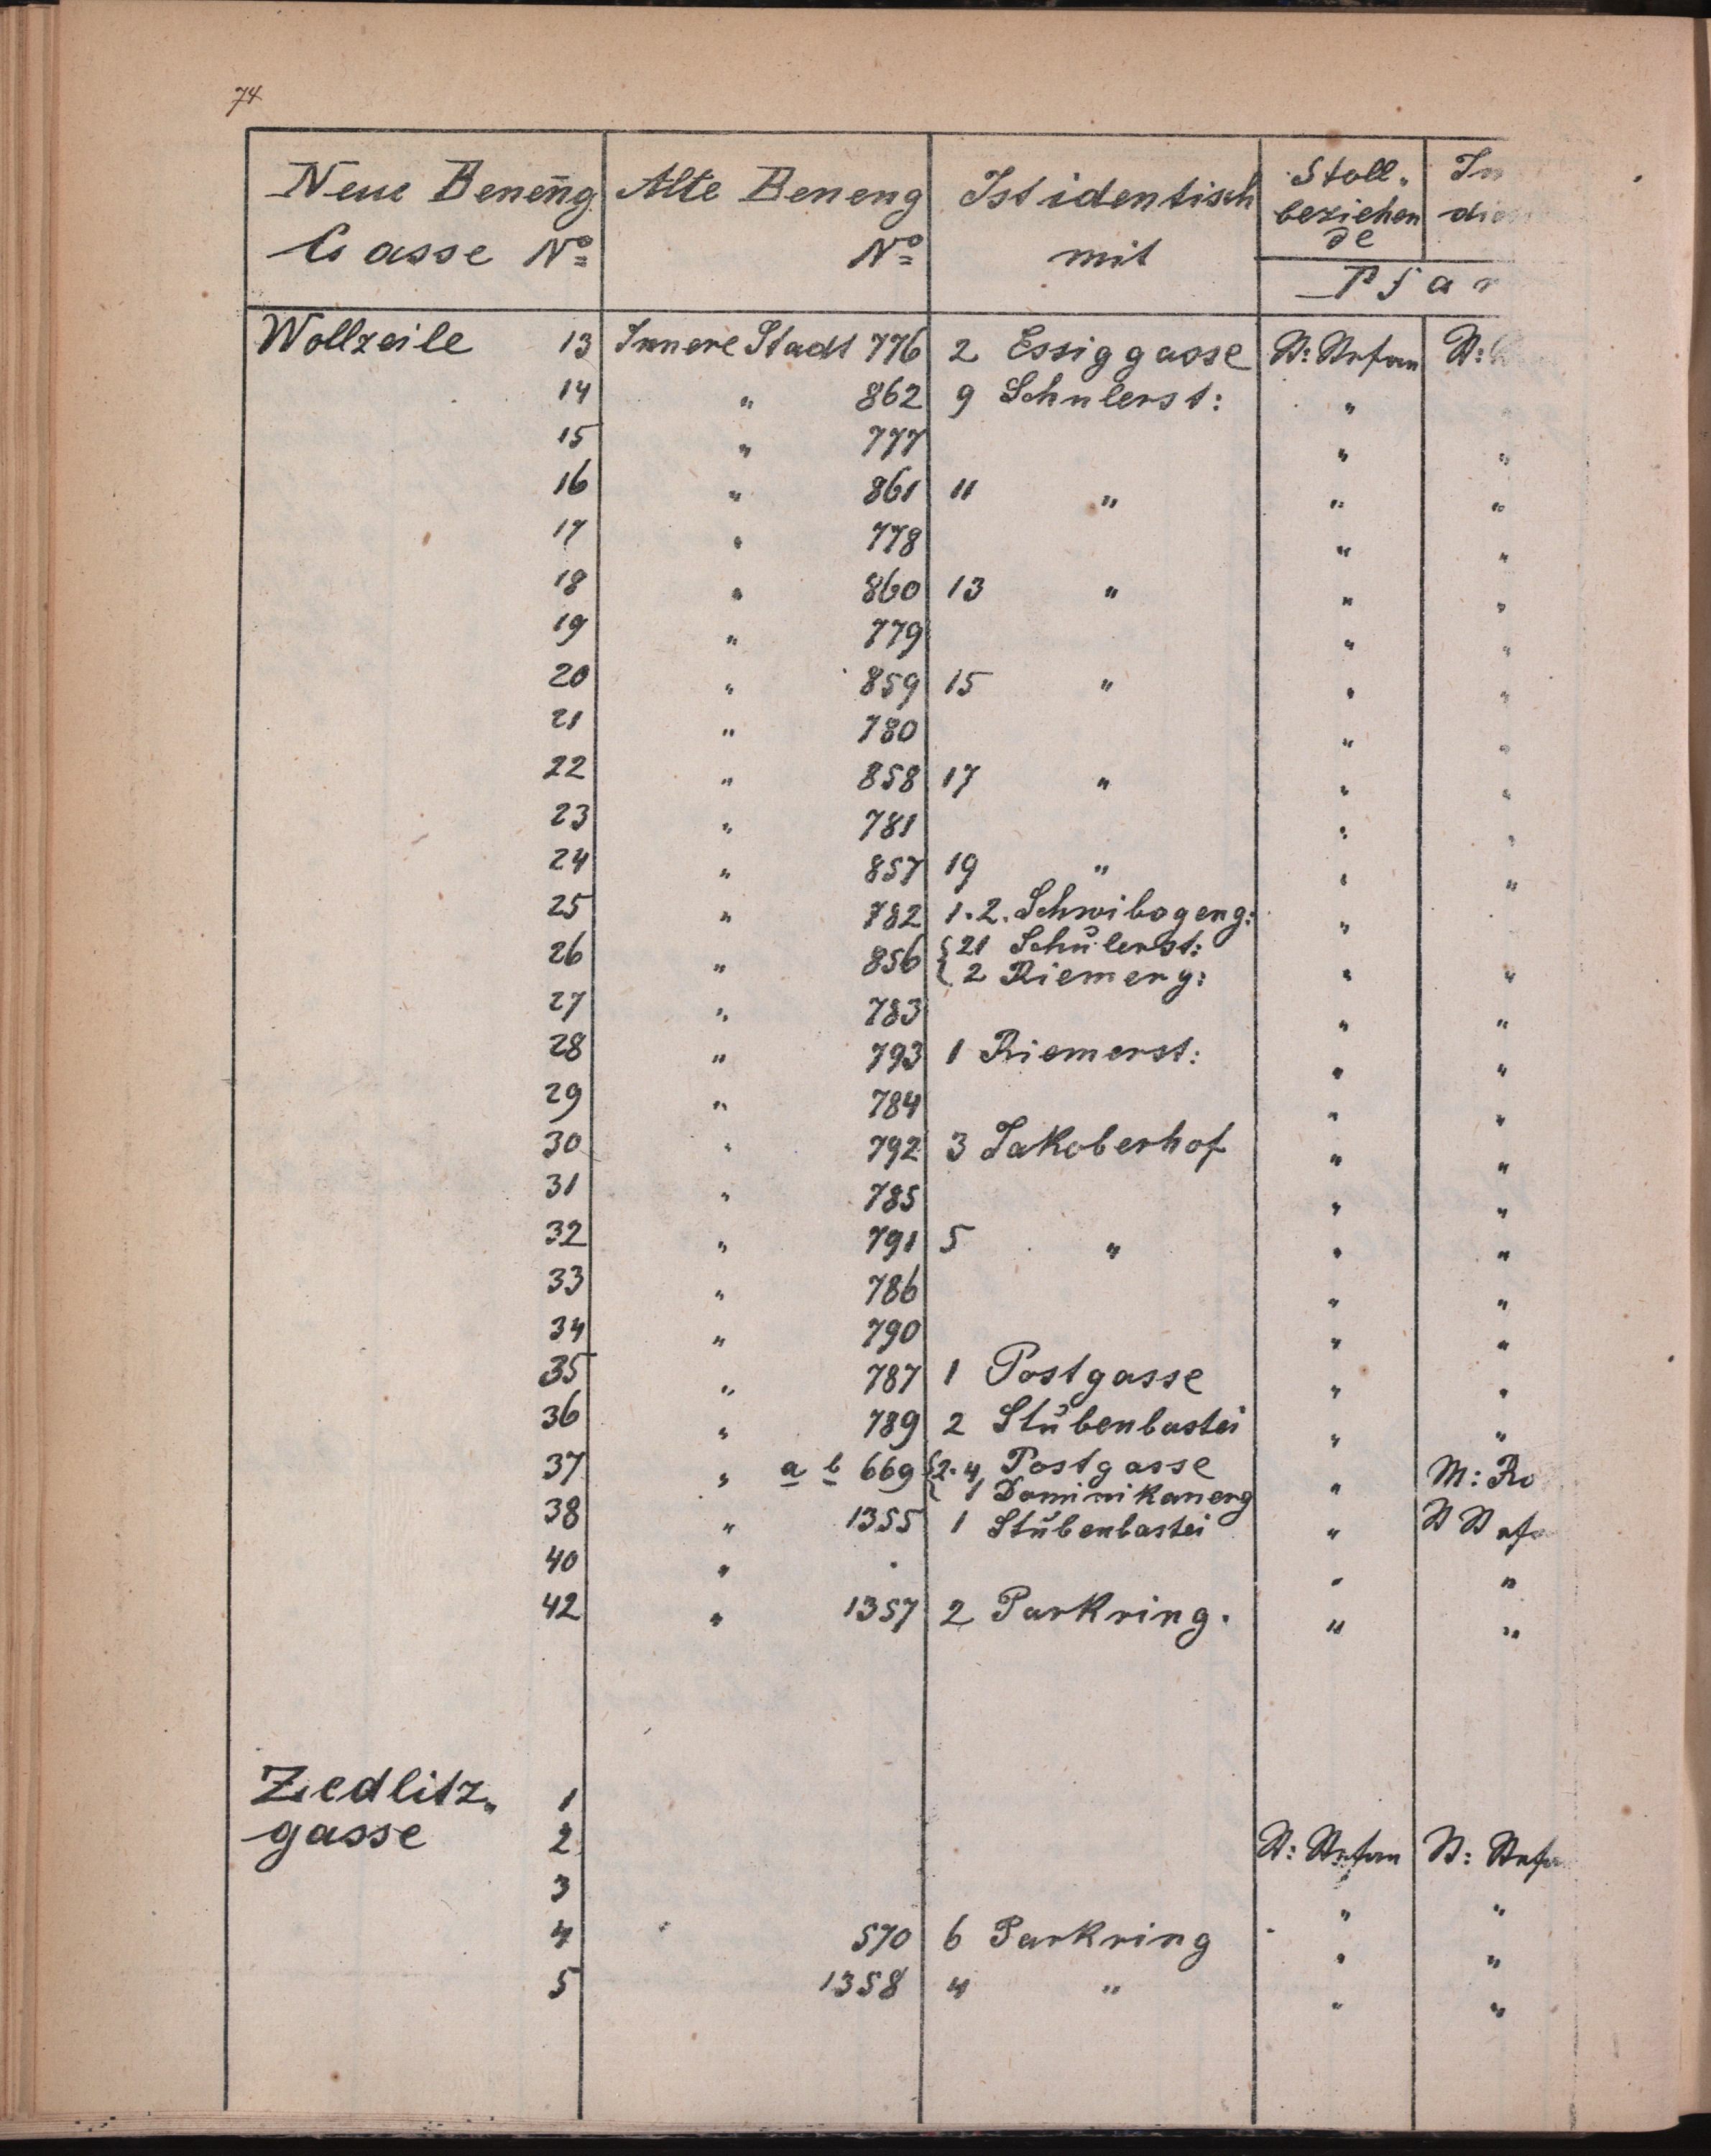 74
Neue Beneñg Alte Beneng Ist identisch Stoll- In
Gasse No No mit beziehen di
de
Pfar
Wollzeile 13 Innere Stadt 776 2 Essiggasse St: Stefan St:
14 " 862 9 Schulerst: "
15 " 777 " "
16 " 861 11 " " "
17 " 778 " "
18 " 860 13 " " "
19 " 779 " "
20 " 859 15 " " "
21 " 780 " "
22 " 858 17 " " "
23 " 781 " "
24 " 857 19 " " "
25 " 782 1.2. Schwibogeng: "
26 " 856 { 21 Schŭlerst: " "
2 Riemerg:
27 " 783 " "
28 " 793 1 Riemerst: " "
29 " 784 " "
30 " 792 3 Jakoberhof " "
31 " 785 " "
32 " 791 5 " " "
33 " 786 " "
34 " 790 " "
35 " 787 1 Postgasse " "
36 " 789 2 Stŭbenbastei " "
37 " a b 669 { 2.4 Postgasse " M: Ro
1 Dominikanerg
38 " 1355 1 Stŭbenbastei " St Stefa
40 " . " "
42 " 1357 2 Parkring. " "
Zedlitz- 1
gasse 2 St: Stefan St: Stefa
3 " "
4 570 6 Parkring " "
5 1358 4 " " "